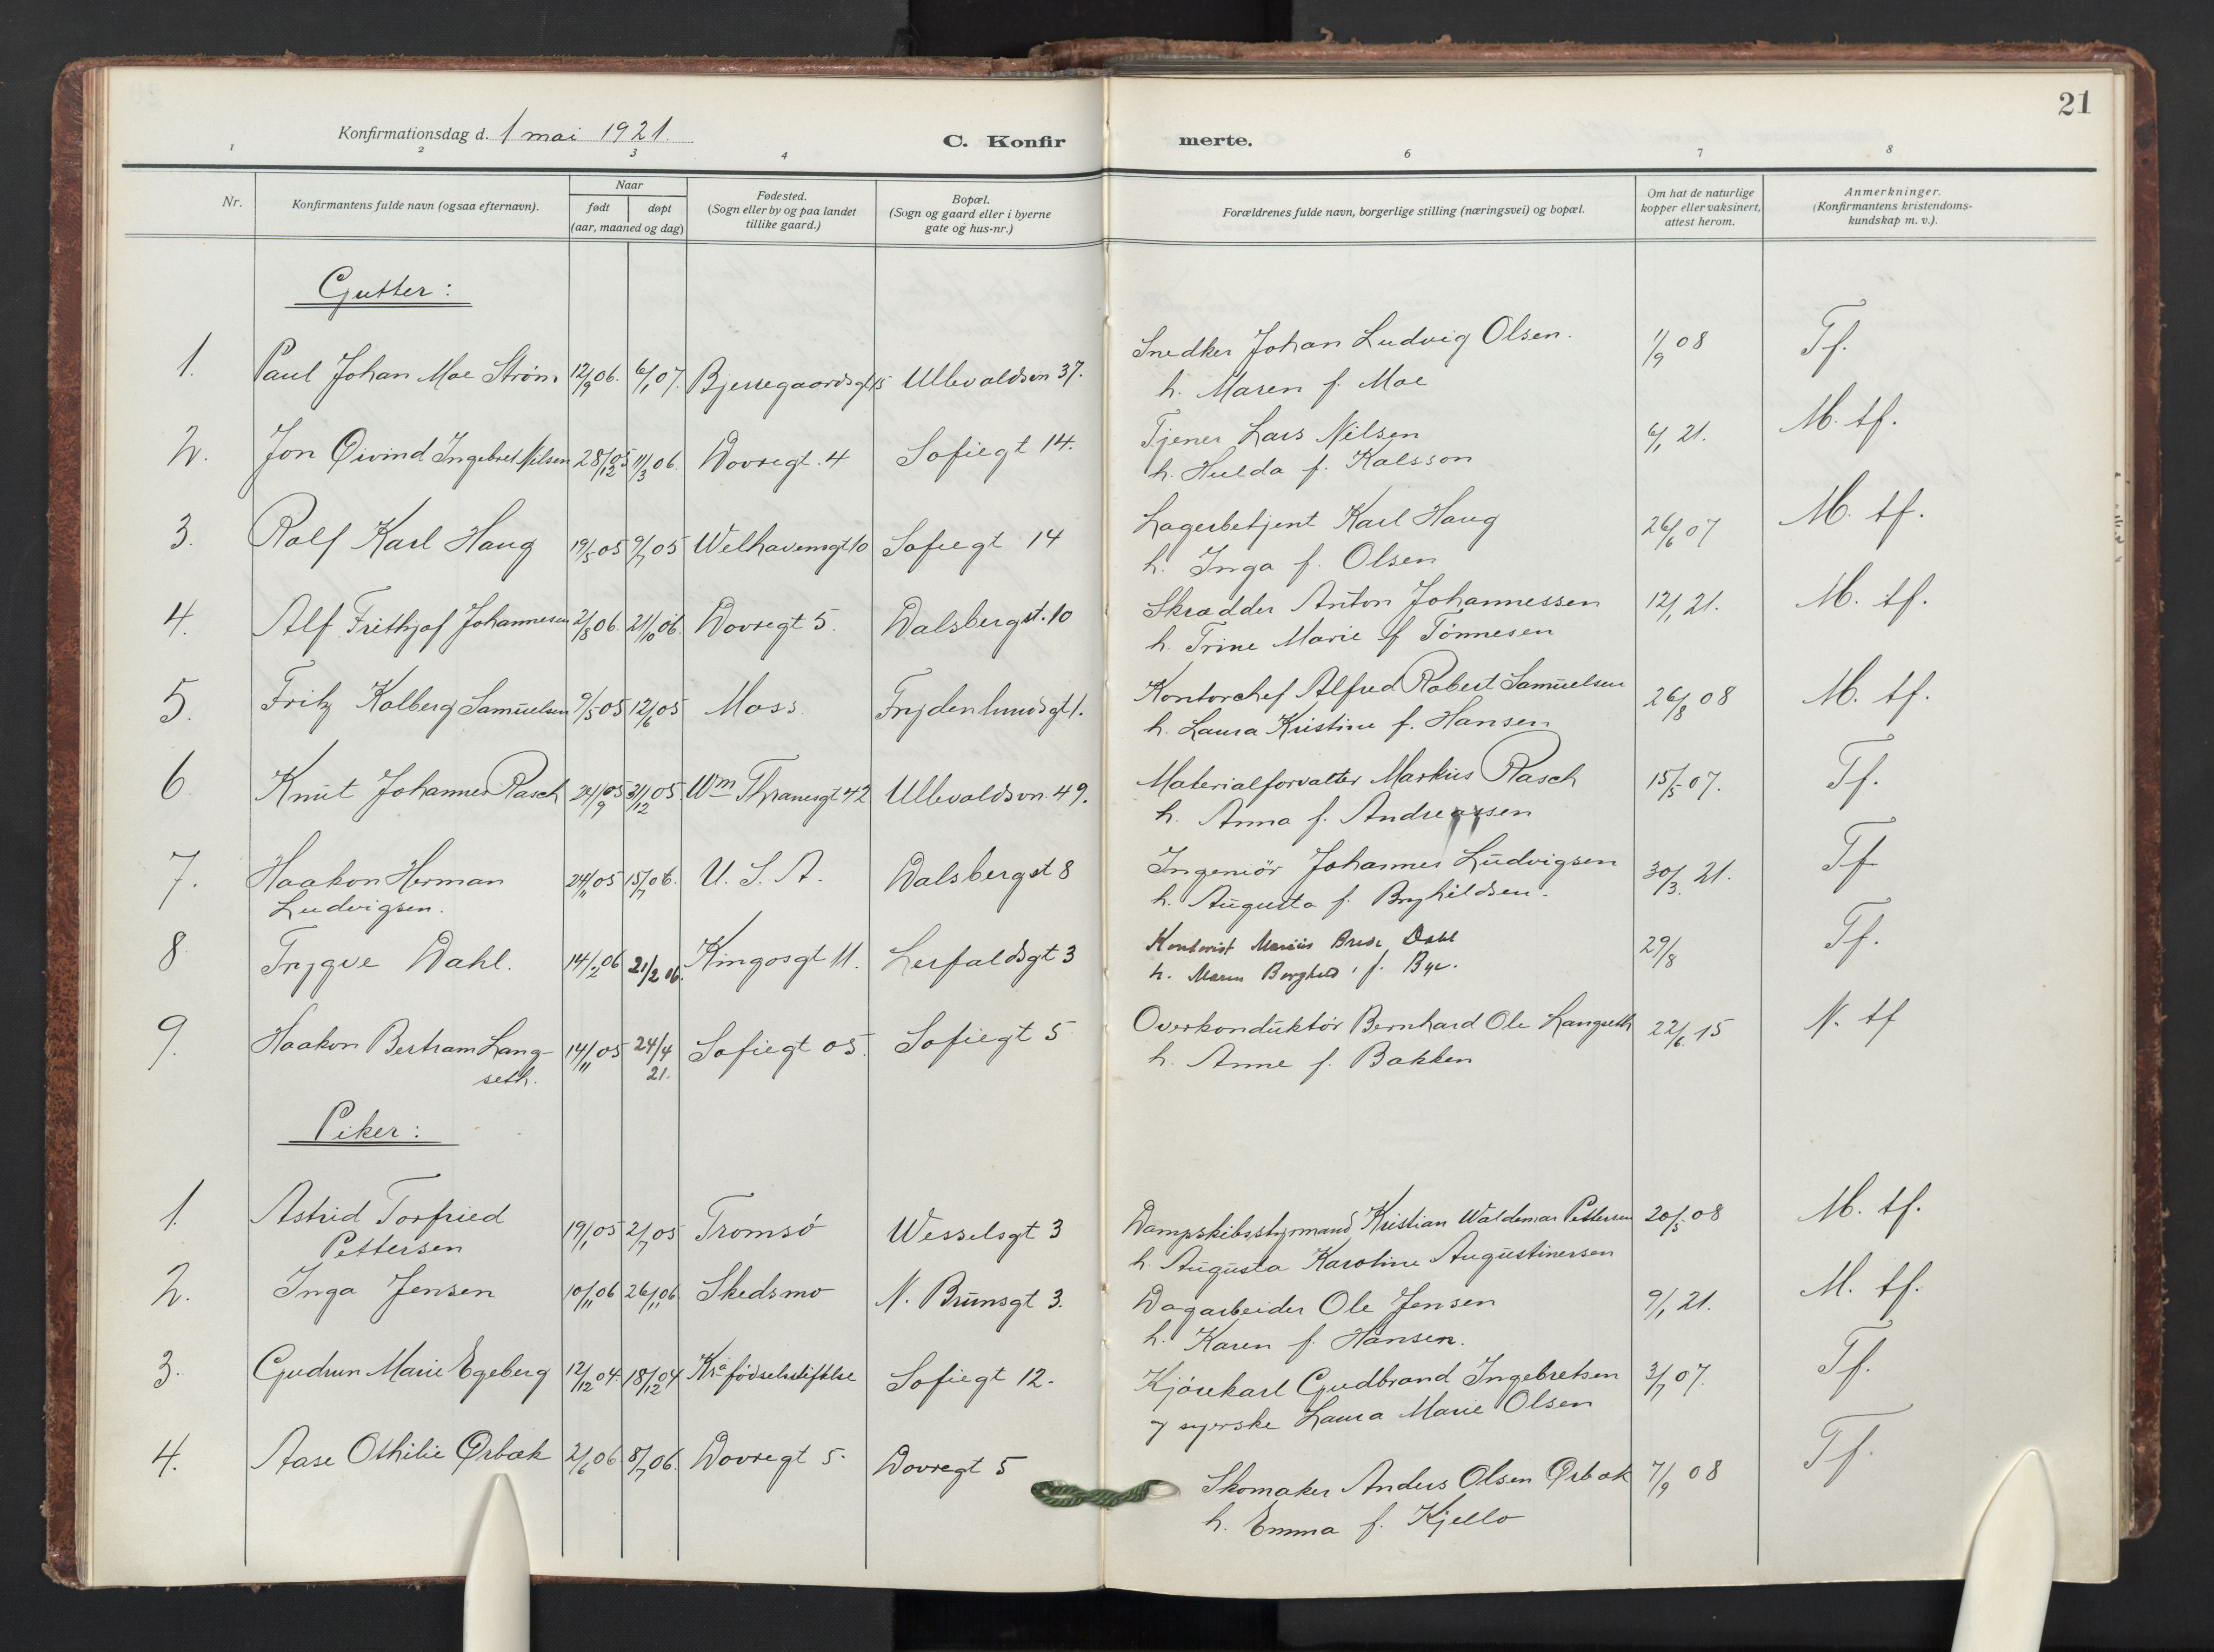 21
Konfirmationsdag d. 1 mai 1921.
C. Konfir merte.
1 2 3 4 6 7 8
Nr.
Konfirmantens fulde navn (ogsaa efternavn).
Naar
født døpt
(aar, maaned og dag)
Fødested.
(Sogn eller by og paa landet
tillike gaard.)
Bopæl.
(Sogn og gaard eller i byerne
gate og hus-nr.)
Forældrenes fulde navn, borgerlige stilling (næringsvei) og bopæl.
Om hat de naturlige
kopper eller vaksinert,
attest herom.
Anmerkninger.
(Konfirmantens kristendoms-
kundskap m. v.).
Gutter:
1. Paul Johan Moe Strøm 12/9 06. 6/1 07. Bjerregaardsgt 15 Ullevoldsvn 37. Snedker Johan Ludvig Olsen. 1/9 08 Tf.
h. Maren f. Moe
2. Jon Øivind Ingebret Nilsen 28/12 05 11/3 06. Dovregt. 4 Sofiegt 14. Tjener Lars Nilsen 6/1 21. M. tf.
h. Hulda f. Kalsson
3. Rolf Karl Haug 19/5 05 9/7 05 Welhavensgt 10 Sofiegt 14 Lagerbetjent Karl Haug 26/6 07 M. tf.
h. Inga f. Olsen
4. Alf Frithjof Johannesen 2/8 06. 21/10 06. Dovregt 5. Dalsbergst. 10 Skrædder Anton Johannessen 12/1 21. M. tf.
h. Trine Marie f Tönnesen
5. Fritz Kolberg Samuelsen 9/5 05 12/6 05 Moss Frydenlundsgt 1. Kontorchef Alfred Robert Samuelsen 26/8 08 M. tf.
h. Laura Kristine f. Hansen
6. Knut Johannes Rasch 24/9 05 31/12 05 Wm Thranesgt 42 Ullevoldsvn. 49. Materialforvalter Markus Rasch 15/5 07. Tf.
h. Anna f. Andreassen
7. Haakon Herman 24/11 05 15/7 06. U. S. A. Dalsbergst 8 Ingeniör Johannes Ludvigsen 30/3. 21. Tf
Ludvigsen. h. Augusta f. Bryhildsen.
8 Trygve Dahl. 14/2 06 21/2 06. Kingosgt 11. Lerfaldsgt 3 Kontorist Marius Dahl 29/8 Tf.
h. Maren Borghild f. Bye.
9. Haakon Bertram Lang- 14/11 05 24/4 Sofiegt 05. Sofiegt 5 Overkonduktör Bernhard Ole Langseth 22/6. 15 N. tf
seth. 21. h. Anne f. Bakken
Piker:
1. Astrid Torfried 19/1 05 2/7 05 Tromsö Wesselsgt 3 Dampskibsstyrmand Kristian Waldemar Pettersen 20/5 08 M. tf.
Pettersen h. Augusta Karoline Augustinersen
2. Inga Jensen 10/11 06 26/11 06 Skedsmo N. Brunsgt 3. Dagarbeider Ole Jensen 9/1 21. M. tf.
h. Karen f. Hansen.
3. Gudrun Marie Egeberg 12/12 04 18/12 04 Kra födselsstiftelse Sofiegt 12. Kjörekarl Gudbrand Ingebretsen 3/7 07. Tf.
og syerske Laura Marie Olsen
4. Aase Othilie Ørbæk 2/6 06 8/7 06. Dovregt 5. Dovregt 5 Skomaker Anders Olsen Ørbæk 7/9 08 Tf.
h. Emma f. Kjello